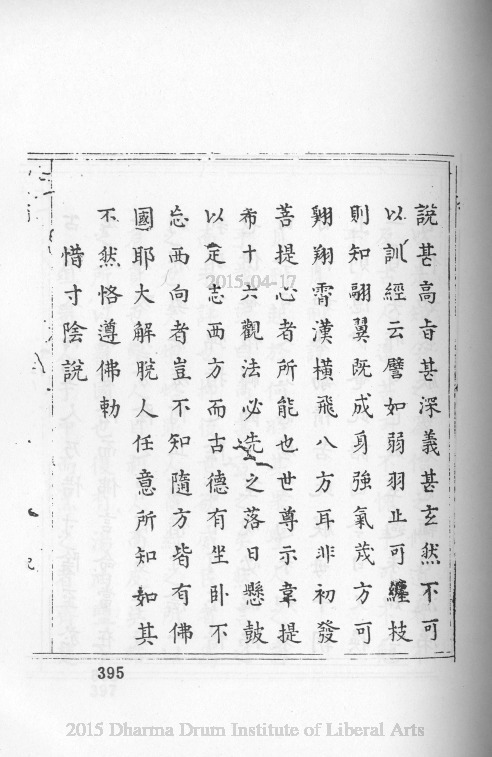 說甚高旨甚深義甚玄然不可
以訓經云譬如弱羽止可纏枝
則知翮翼既成身強氣茂方可
翱翔霄漢橫飛八方耳非初發
菩提心者所能也世尊示韋提
希十六觀法必先之落日懸鼓
以定志西方而古德有坐臥不
忘西向者豈不知隨方皆有佛
國耶大解脫人任意所知如其
不然恪遵佛勅
惜寸陰說
395
2015-04-17
2015 Dharma Drum Institute of Liberal Arts